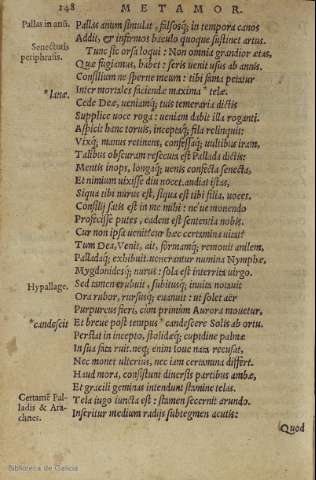 148 METAMOR.
Pallas in anū.
Pallas anum simulat, falsosq; in tempora canos
Addit, & infirmos baculo quoque sustinet artus.
Senectutis periphrasis.
Tunc sic orsa loqui: Non omnia grandior ætas,
Quæ fugiamus, habet: seris uenit usus ab annis.
Consilium ne sperne meum: tibi fama petatur
*lanæ.
Inter mortales faciendæ maxima* telæ.
Cede Deæ, ueniamq; tuis temeraria dictis
Supplice uoce roga: ueniam dabit illa roganti.
Aspicit hanc toruis, inceptaq; fila relinquit:
Vixq; manus retinens, confessaq; uultibus iram,
Talibus obscuram resecuta est Pallada dictis:
Mentis inops, longaq; uenis confecta senecta,
Et nimium uixisse diu nocet. audiat istas,
Siqua tibi nurus est, siqua est tibi filia, uoces.
Consilij satis est in me mihi: ne ue monendo
Profecisse putes, eadem est sententia nobis.
Cur non ipsa uenit? cur hæc certamina uitat?
Tum Dea, Venit, ait, formamq; remouit anilem,
Palladaq; exhibuit. uenerantur numina Nymphæ,
Mygdonidesq; nurus: sola est interrita uirgo.
Hypallage.
Sed tamen erubuit, subitusq; inuita notauit
Ora rubor, rursusq; euanuit: ut solet aër
Purpureus fieri, cum primùm Aurora mouetur,
*candescit
Et breue post tempus* candescere Solis ab ortu.
Perstat in incepto, stolidæq; cupidine palmæ
In sua fata ruit. neq; enim Ioue nata recusat,
Nec monet ulterius, nec iam certamina differt.
Haud mora, consistunt diuersis partibus ambæ,
Et gracili geminas intendunt stamine telas.
Certamē Palladis & Arachnes.
Tela iugo iuncta est: stamen secernit arundo.
Inseritur medium radijs subtegmen acutis:
Quod
Biblioteca de Galicia